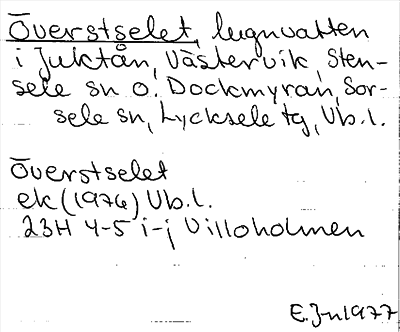 Överstselet, lugnvatten
i Juktån, Västervik, Sten-
sele sn o. Dockmyran, Sor-
sele sn, Lycksele tg, Vb.l.
Överstselet
ek (1974) Vb.l.
23H 4-5 i-j Villoholmen
E.J-n 1977